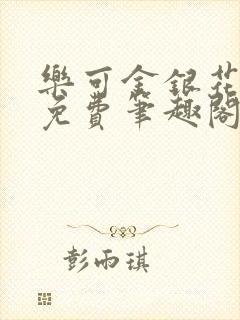 樂可金銀花
免費筆趣閣
彭雨琪